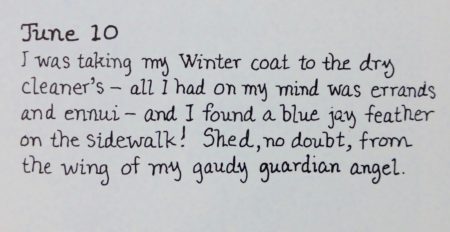 June 10
I was taking my Winter coat to the dry
cleaner's – all I had on my mind was errands
and ennui – and I found a blue jay feather
on the sidewalk! Shed, no doubt, from
the wing of my gaudy guardian angel.